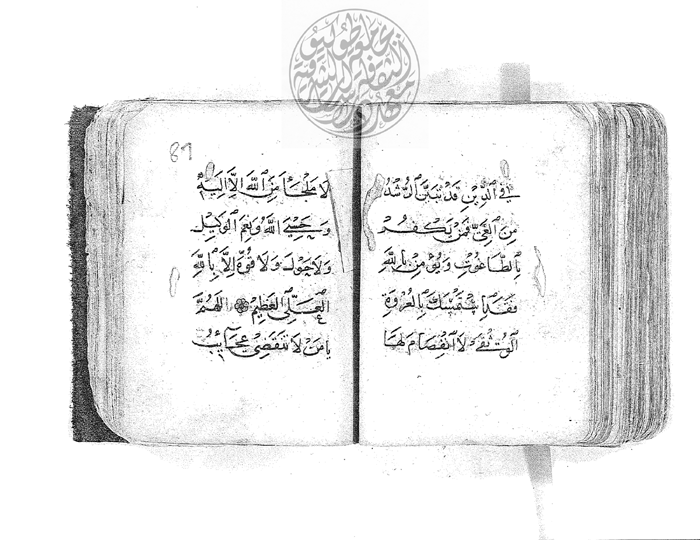 في الدين قد تبين الرشد
من الغي فمن يكفر
بالطاغوت ويؤمن بالله
فقد استمسك بالعروة
الوثقى لا انفصام لها
89
لا ملجأ من الله إلا إليه
وحسبي الله ونعم الوكيل
ولا حول ولا قوة إلا بالله
العلي العظيم اللهم
يا من لا تنقضي عجائب